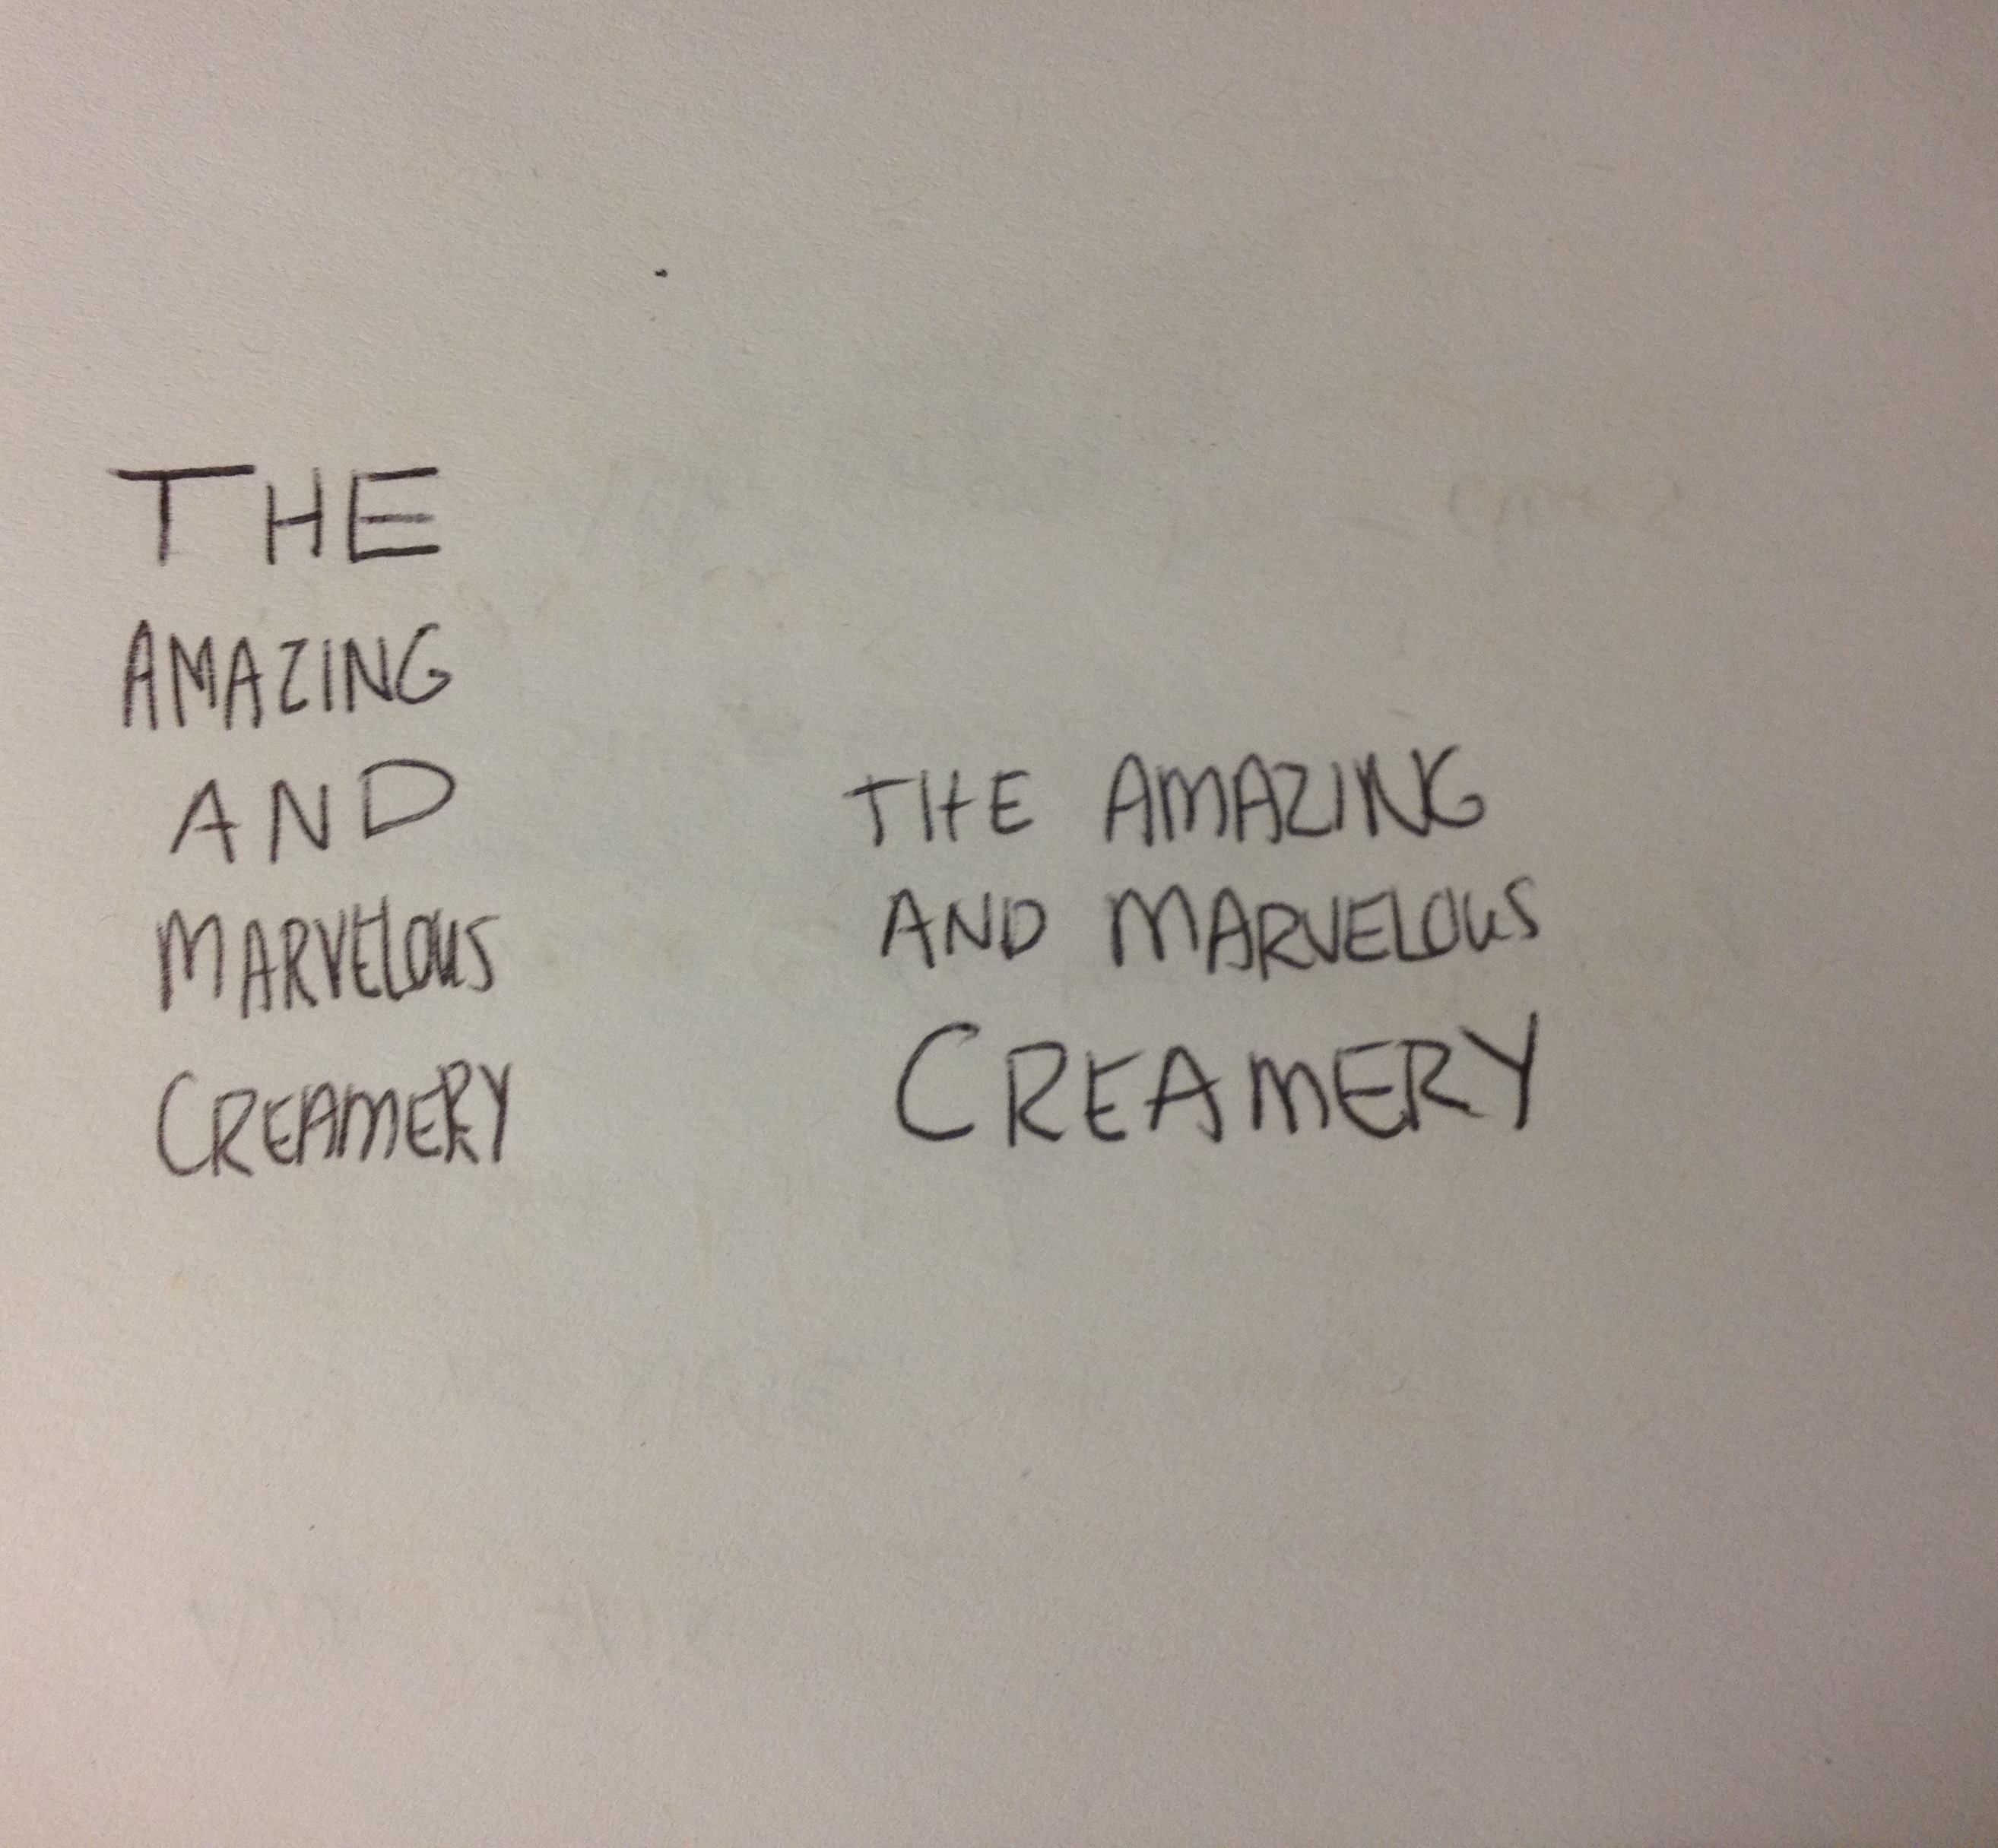 THE
AMAZING
AND
MARVELOUS
CREAMERY
THE AMAZING
AND MARVELOUS
CREAMERY